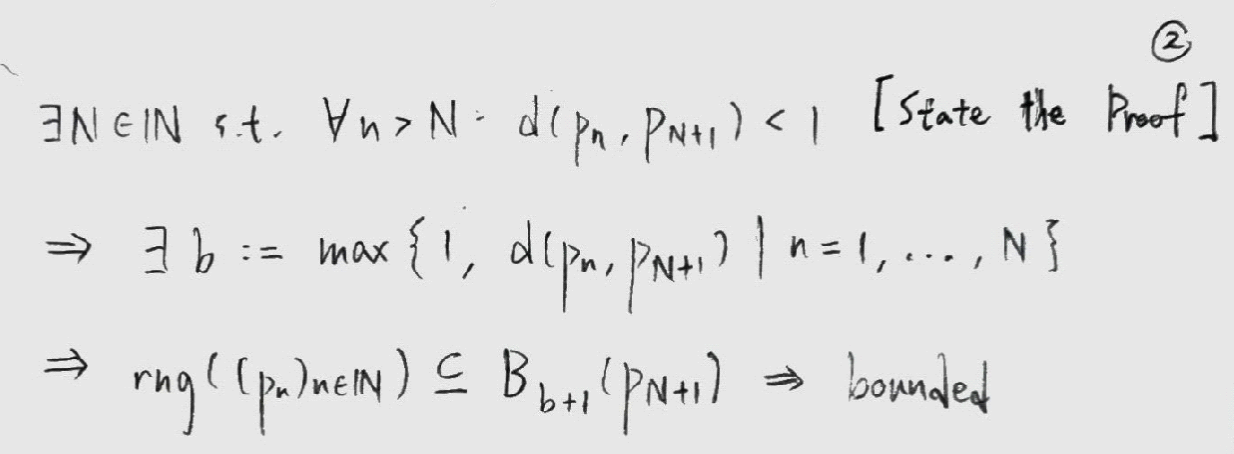 ②
∃N∈ℕ s.t. ∀n>N: d(pₙ, p_{N+1}) < 1 [State the Proof]
⇒ ∃ b := max{1, d(pₙ, p_{N+1}) | n = 1, ..., N}
⇒ rng((pₙ)n∈ℕ) ⊆ B_{b+1}(p_{N+1}) ⇒ bounded